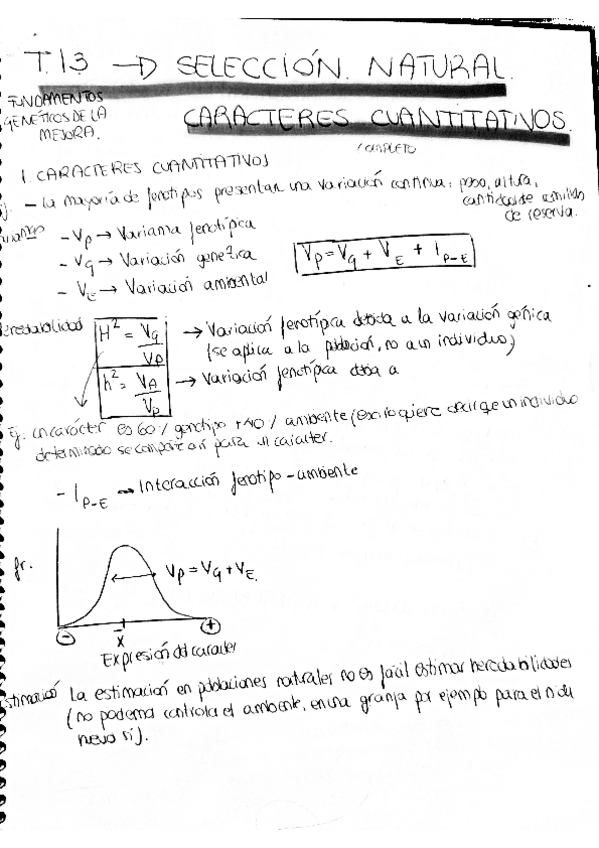 T.13 → SELECCIÓN NATURAL.
FUNDAMENTOS GENÉTICOS DE LA MEJORA.
CARACTERES CUANTITATIVOS.
COMPLETO
1. CARACTERES CUANTITATIVOS
- La mayoría de fenotipos presentan una variación continua: peso, altura,
cantidad de semillas
de reserva.
- Vp → Varianza fenotípica
- Vg → Variación genética
- VE → Variación ambiental
Vp = Vg + VE + I P-E
H² = Vg/Vp → Variación fenotípica debida a la variación génica
(se aplica a la población, no a un individuo)
h² = VA/Vp → Variación fenotípica debida a
Ej: un carácter es 60% genotipo + 40% ambiente (eso no quiere decir que un individuo
determinado se comporte así para un carácter.
- I P-E → Interacción fenotipo - ambiente
fr.
Vp = Vg + VE.
- x̄ +
Expresión del carácter
La estimación en poblaciones naturales no es fácil estimar heredabilidades
(no podemos controlar el ambiente, en una granja por ejemplo para el
huevo sí).